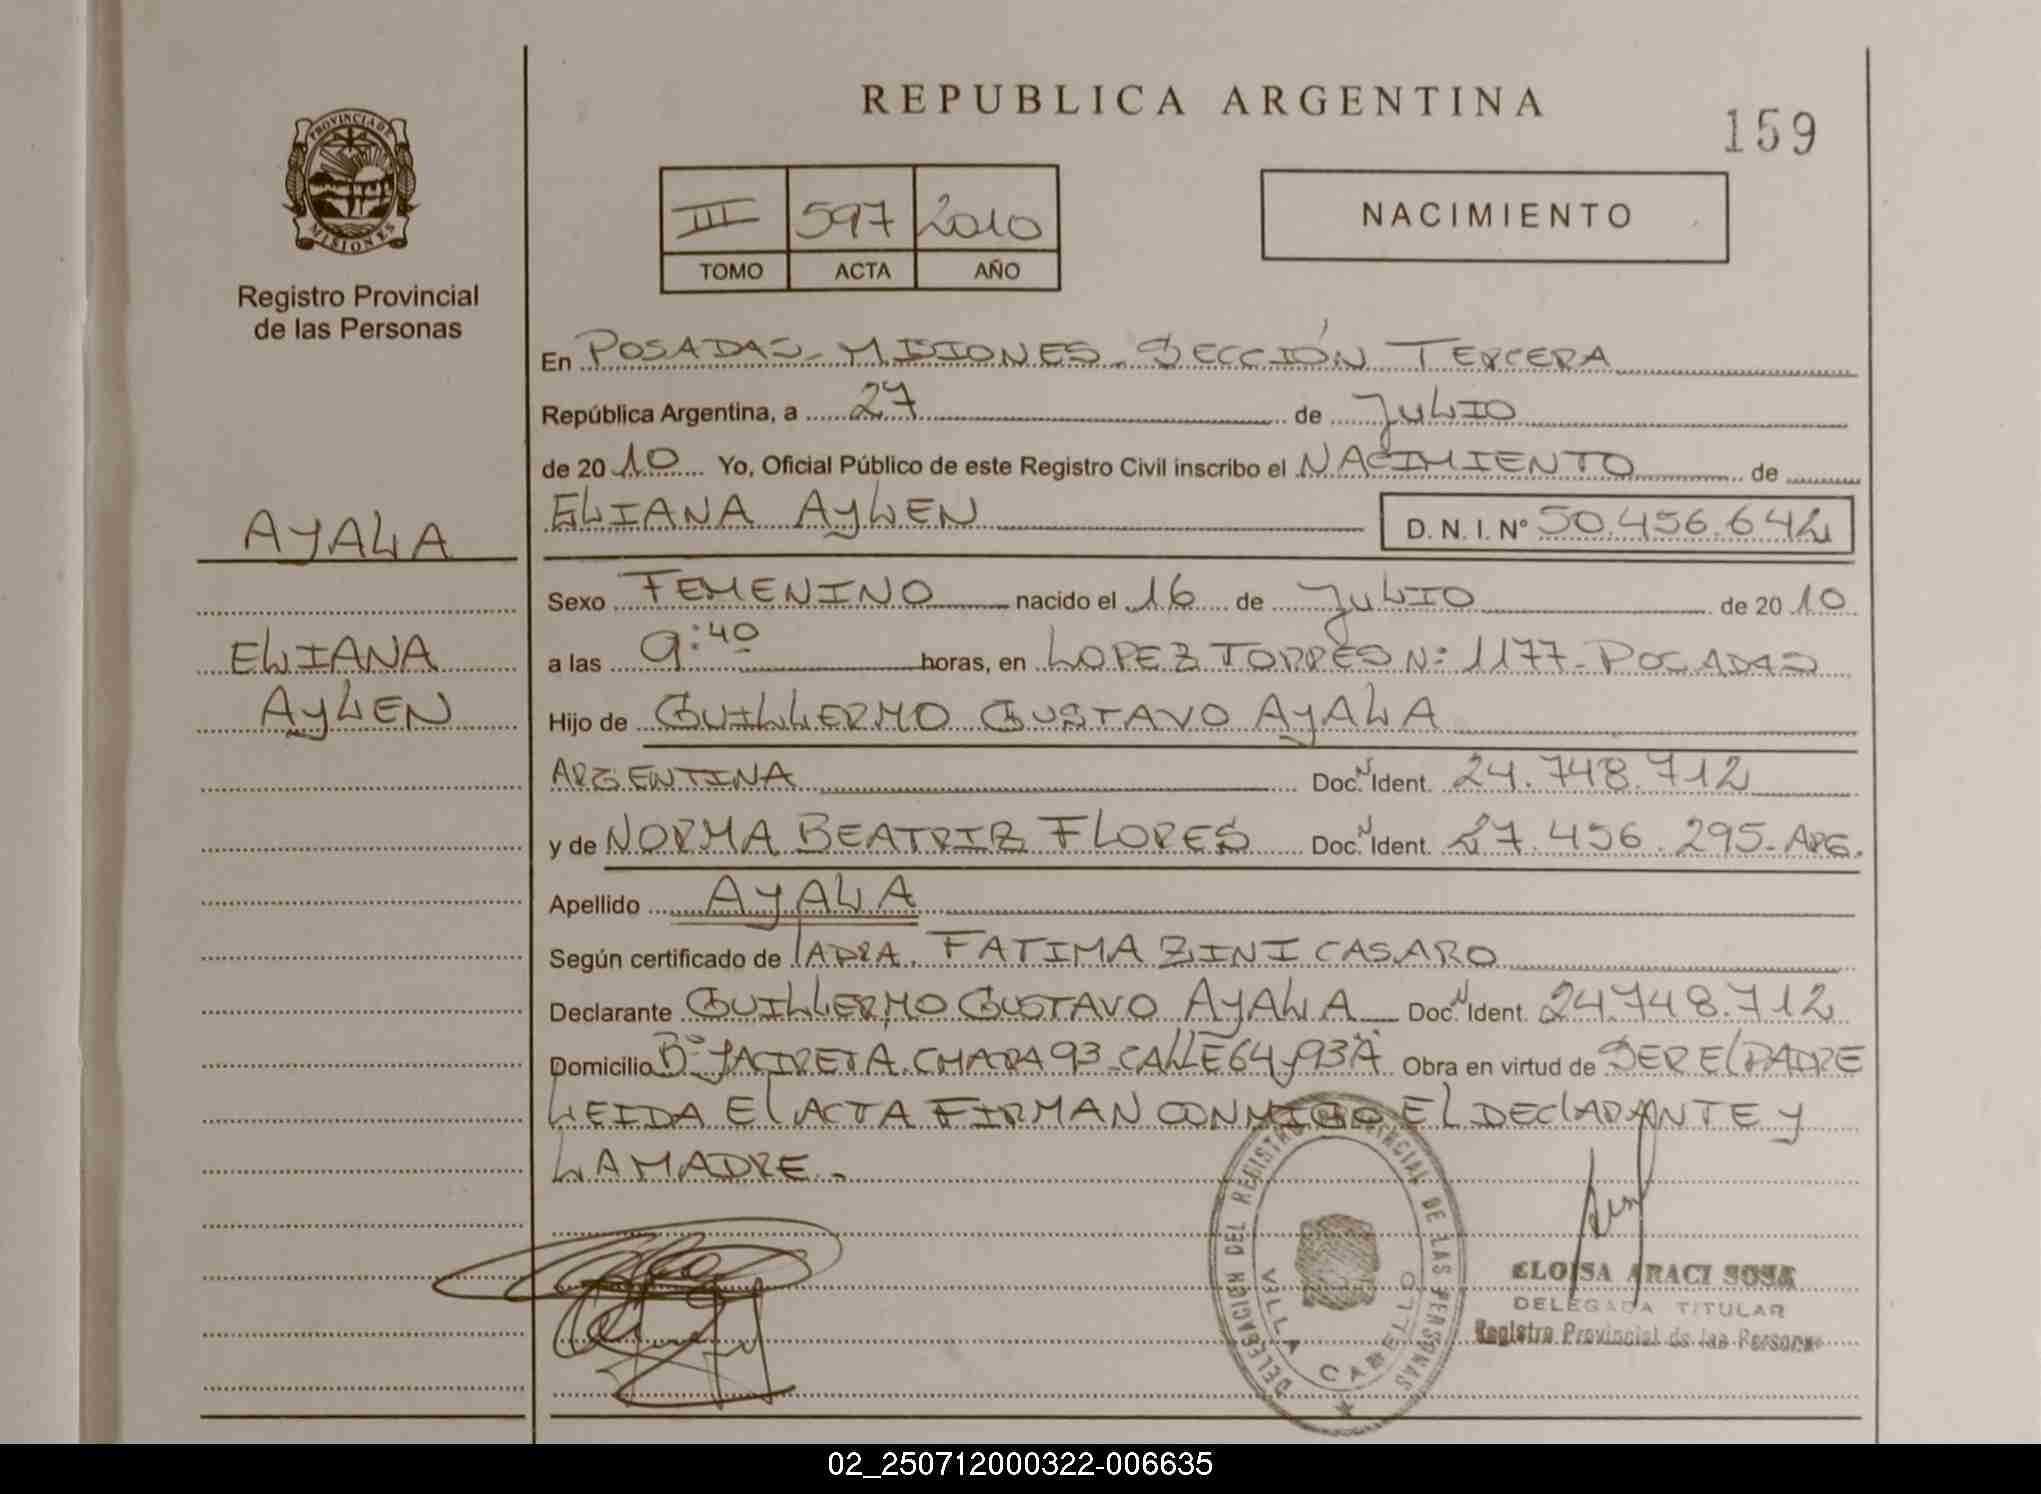 REPUBLICA ARGENTINA
159
PROVINCIA DE
MISIONES
Registro Provincial
de las Personas
III 597 2010
TOMO ACTA AÑO
NACIMIENTO
En POSADAS - MISIONES - SECCIÓN TERCERA
República Argentina, a 27 de JULIO
de 2010 Yo, Oficial Público de este Registro Civil inscribo el NACIMIENTO de
ELIANA AYLEN D. N. I. Nº 50.456.642
AYALA
ELIANA
AYLEN
Sexo FEMENINO nacido el 16 de JULIO de 2010
a las 9:40 horas, en LOPEZ TORRES Nº 1177 - POSADAS
Hijo de GUILLERMO GUSTAVO AYALA
ARGENTINA Doc. N Ident. 24.748.712
y de NORMA BEATRIZ FLORES Doc. N Ident. 27.456.295 - ARG.
Apellido AYALA
Según certificado de la DRA. FATIMA ZINI CASARO
Declarante GUILLERMO GUSTAVO AYALA Doc. N Ident. 24.748.712
Domicilio Bº YACIRETA. CHARA 93 - CALLE 64 y 93 A Obra en virtud de SER EL PADRE
LEIDA EL ACTA FIRMAN CONMIGO EL DECLARANTE Y
LA MADRE.
DELEGACION DEL REGISTRO PROVINCIAL DE LAS PERSONAS
VILLA CABELLO
ELOISA ARACI SOSA
DELEGADA TITULAR
Registro Provincial de las Personas
02_250712000322-006635